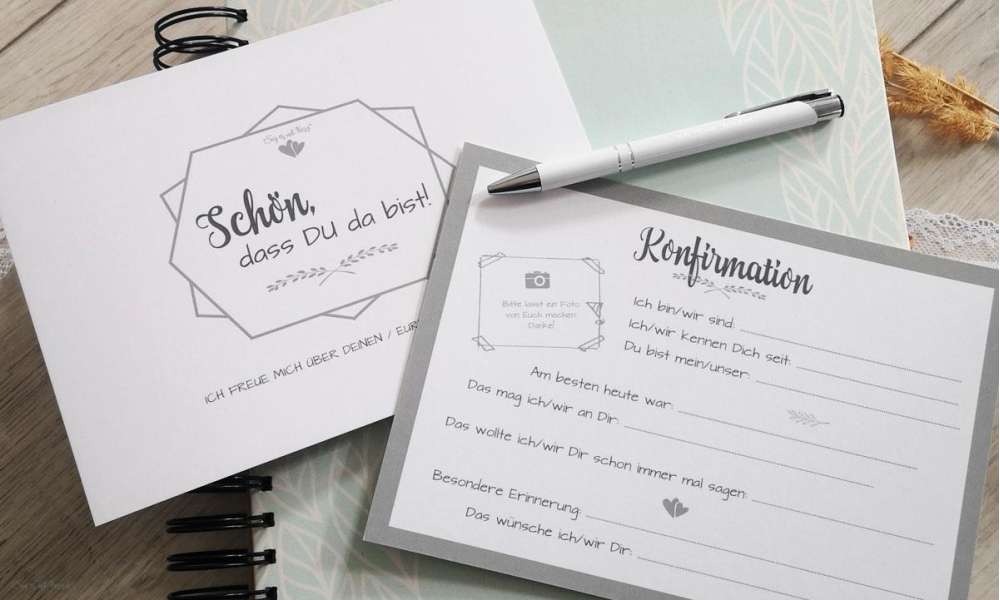 Schön,
dass Du da bist!
ICH FREUE MICH ÜBER DEINEN /
Konfirmation
Bitte lasst ein Foto
von Euch machen.
Danke!
Ich bin/wir sind:
Ich/wir kennen Dich seit:
Du bist mein/unser:
Am besten heute war:
Das mag ich/wir an Dir:
Das wollte ich/wir Dir schon immer mal sagen:
Besondere Erinnerung:
Das wünsche ich/wir Dir: